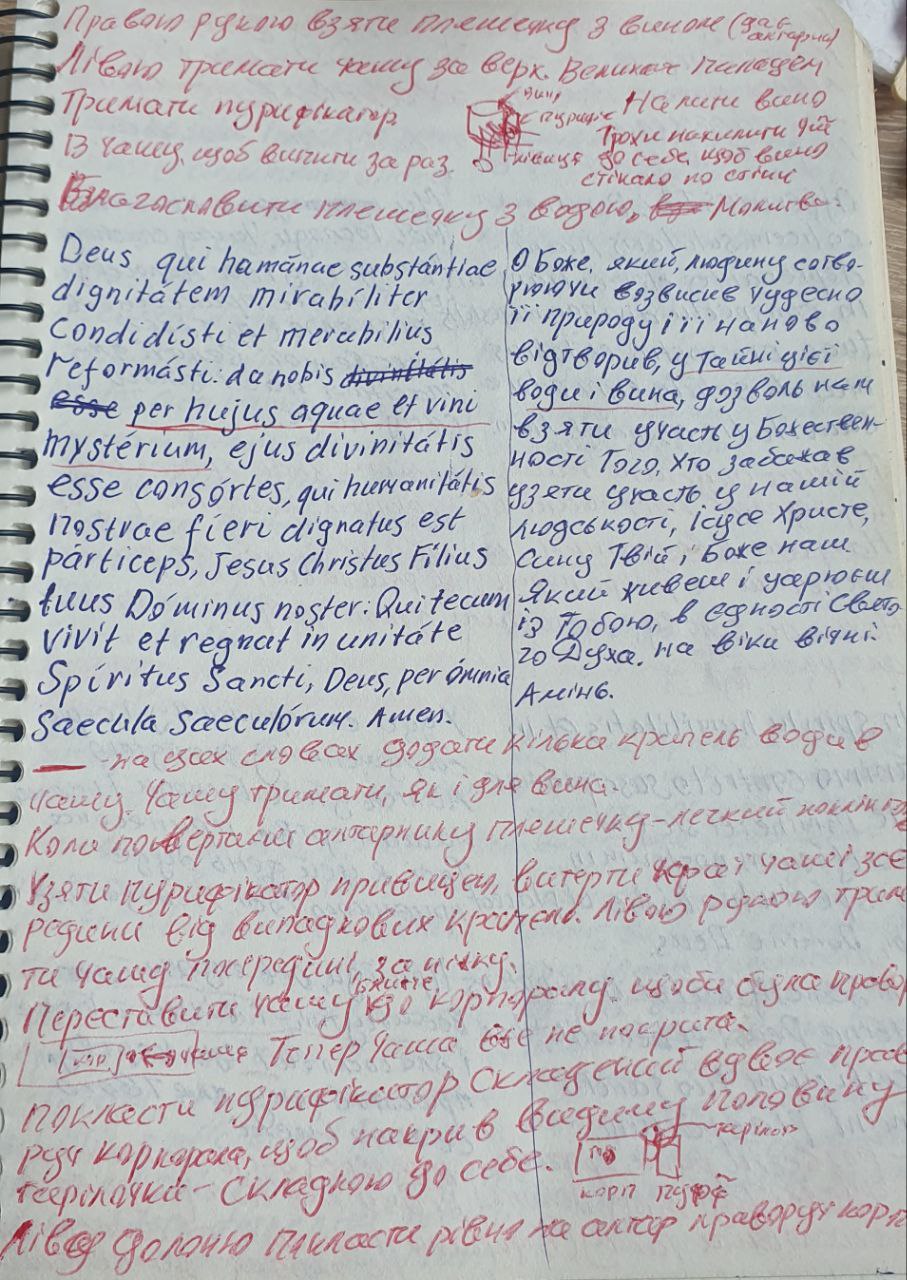 Правою рукою взяти плешечку з вином (дає альтарник)
Лівою тримати чашу за верх. Великим пальцем
Тримати пурифікатор
В чашу, щоб витити за раз.
вино
пурифік
Налити вино
Трохи нахилити
до себе, щоб вино
стікало по стінці
Благословити плешечку з водою, Молитва:
Deus qui hamānae substántiae
dignitátem mirabíliter
Condidísti et merabilius
reformásti: da nobis divinitátis
esse per hujus aquae et vini
mystérium, ejus divinitátis
esse consórtes, qui humanitátis
nostrae fíeri dignatus est
párticeps, Jesus Christus Filius
tuus Dóminus noster: Qui tecum
vivit et regnat in unitáte
Spíritus Sancti, Deus, per ómnia
Saecula Saeculórum. Amen.
О Боже, який, людину сотво-
рюючи возвисив чудесно
її природу і її наново
відтворив, у тайні цієї
води і вина, дозволь нам
взяти участь у Божествен-
ності Того, Хто забажав
узяти участь у нашій
людськості, Ісусе Христе,
Сину Твій і Боже наш
Який живеш і царюєш
із Тобою, в єдності Свято-
го Духа, на віки вічні.
Амінь.
- на цих словах додати кілька крапель води в
чашу. Чашу тримати, як і для вина.
Коли повертаєш алтарнику плешечку - легкий поклін
Узяти пурифікатор правицею, витерти краї чаші
редини від випадкових крапель. Лівою рукою трима
ти чашу посередині, за ніжку.
Переставити чашу ближче до корпоралу, щоби була
Тепер чаша ще не покрита.
Покласти пурифікатор складений вдвоє
руч корпорала, щоб накрив видиму половину
тарілочки - складкою до себе.
тарілочка
корп пуриф
Лівою долоню покласти рівно на алтар праворуч корп